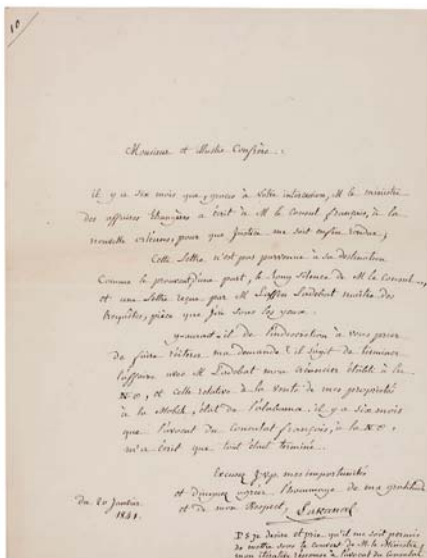 10
Monsieur et illustre Confrère.
il y a six mois que, graces à votre intercession, M le ministre
des affaires Etrangères a écrit de M le Consul français, à la
nouvelle orléans, pour que Justice me soit enfin rendue,
Cette Lettre n'est pas parvenue à sa destination
Comme le prouve d'une part, le long Silence de M le Consul
et une Lettre reçue par M Laffon Ladebat maitre des
Requêtes, pièce que j'ai sous les yeux.
y aurait-il de l'indiscretion à vous prier
de faire réitérer ma demande? il s'agit de terminer
l'affaire avec M Ladebat mon créancier établi à la
N O, et celle relative à la vente de mes propriétés
à la Mobile, état de l'alabama. il y a six mois
que l'avocat du Consulat français, à la N O,
m'a écrit que tout était terminé.
Excusez mes importunités
et daignez agréer l'hommage de ma gratitude
et de mon Respect, Lakanal
du 20 Janvier
1841.
P S je desire et prie, qu'il me soit permis
de mettre sous le couvert de M le Ministre
mon itérative réponse à l'avocat du Consulat